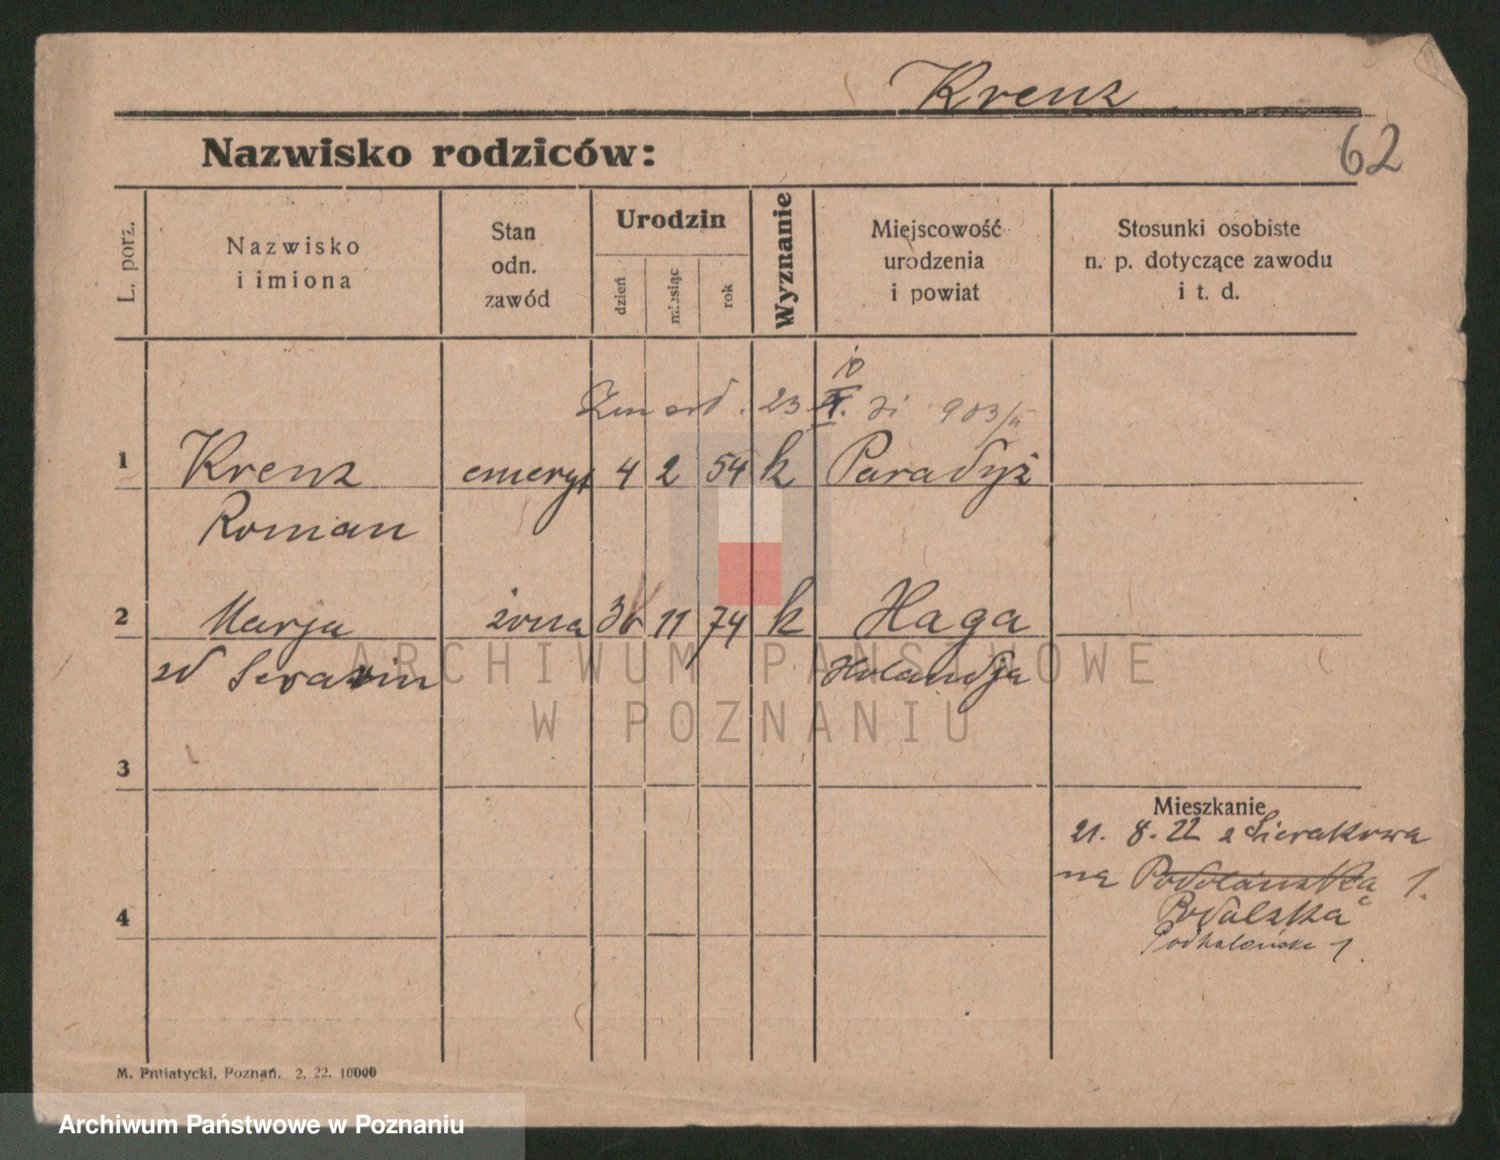 Krenz
62
Nazwisko rodziców:
L. porz.
Nazwisko
i imiona
Stan
odn.
zawód
Urodzin
dzień
miesiąc
rok
Wyznanie
Miejscowość
urodzenia
i powiat
Stosunki osobiste
n. p. dotyczące zawodu
i t. d.
10
Zm 23 903/
1 Krenz emeryt 4 2 54 k Paradyż
Roman
2 Marja żona 11 74 k Haga
zd Holandja
3
Mieszkanie
21. 8. 22 z Sierakowa
na Podolańska 1.
Podolska
Podhalańska 1.
4
M. Pmiatycki, Poznań. 2. 22. 10000
ARCHIWUM PAŃSTWOWE
W POZNANIU
Archiwum Państwowe w Poznaniu